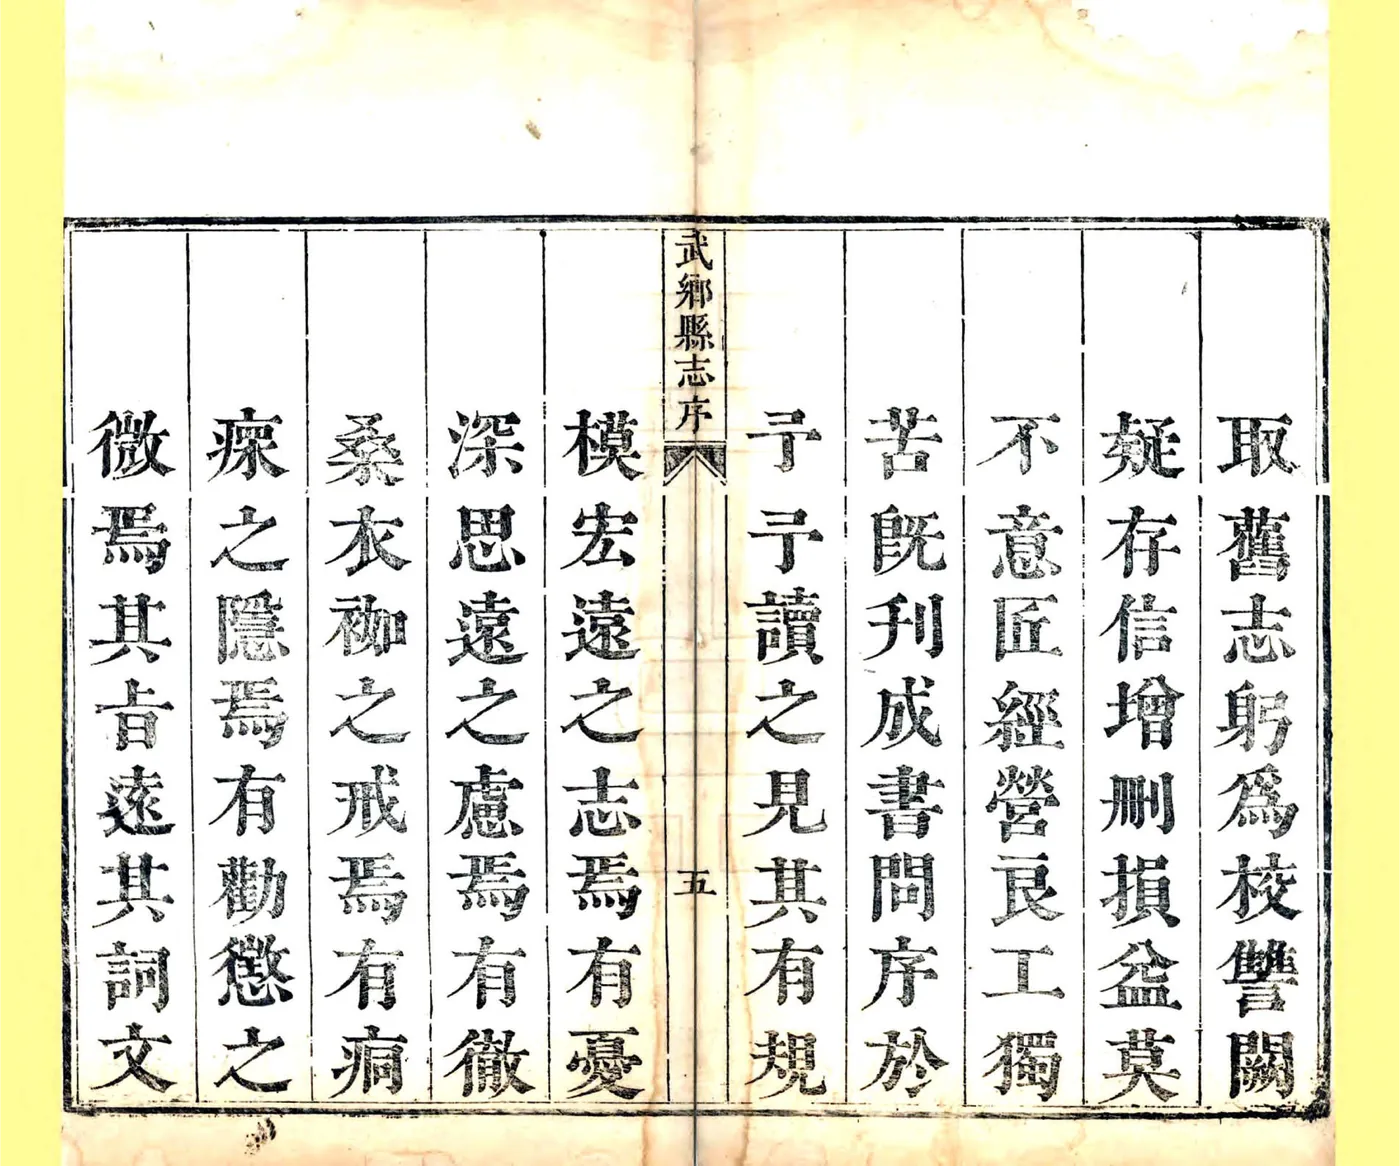 取舊志躬爲校讐闕
疑存信增刪損益莫
不意匠經營良工獨
苦旣刊成書問序於
予予讀之見其有規
武鄉縣志序
五
模宏遠之志焉有憂
深思遠之慮焉有徹
桑衣袽之戒焉有痌
瘝之隱焉有勸懲之
微焉其旨遠其詞文